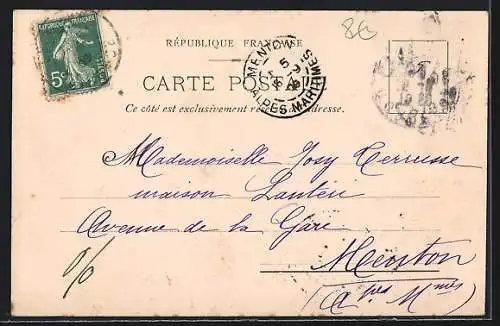 86
RÉPUBLIQUE FRANÇAISE
5c
MENTON
ALPES-MARITIMES
CARTE POSTALE
Ce côté est exclusivement réservé à l'adresse.
Mademoiselle Josy Terrusse
maison Lantéri
Avenue de la Gare
Menton
(Alpes Mmes)